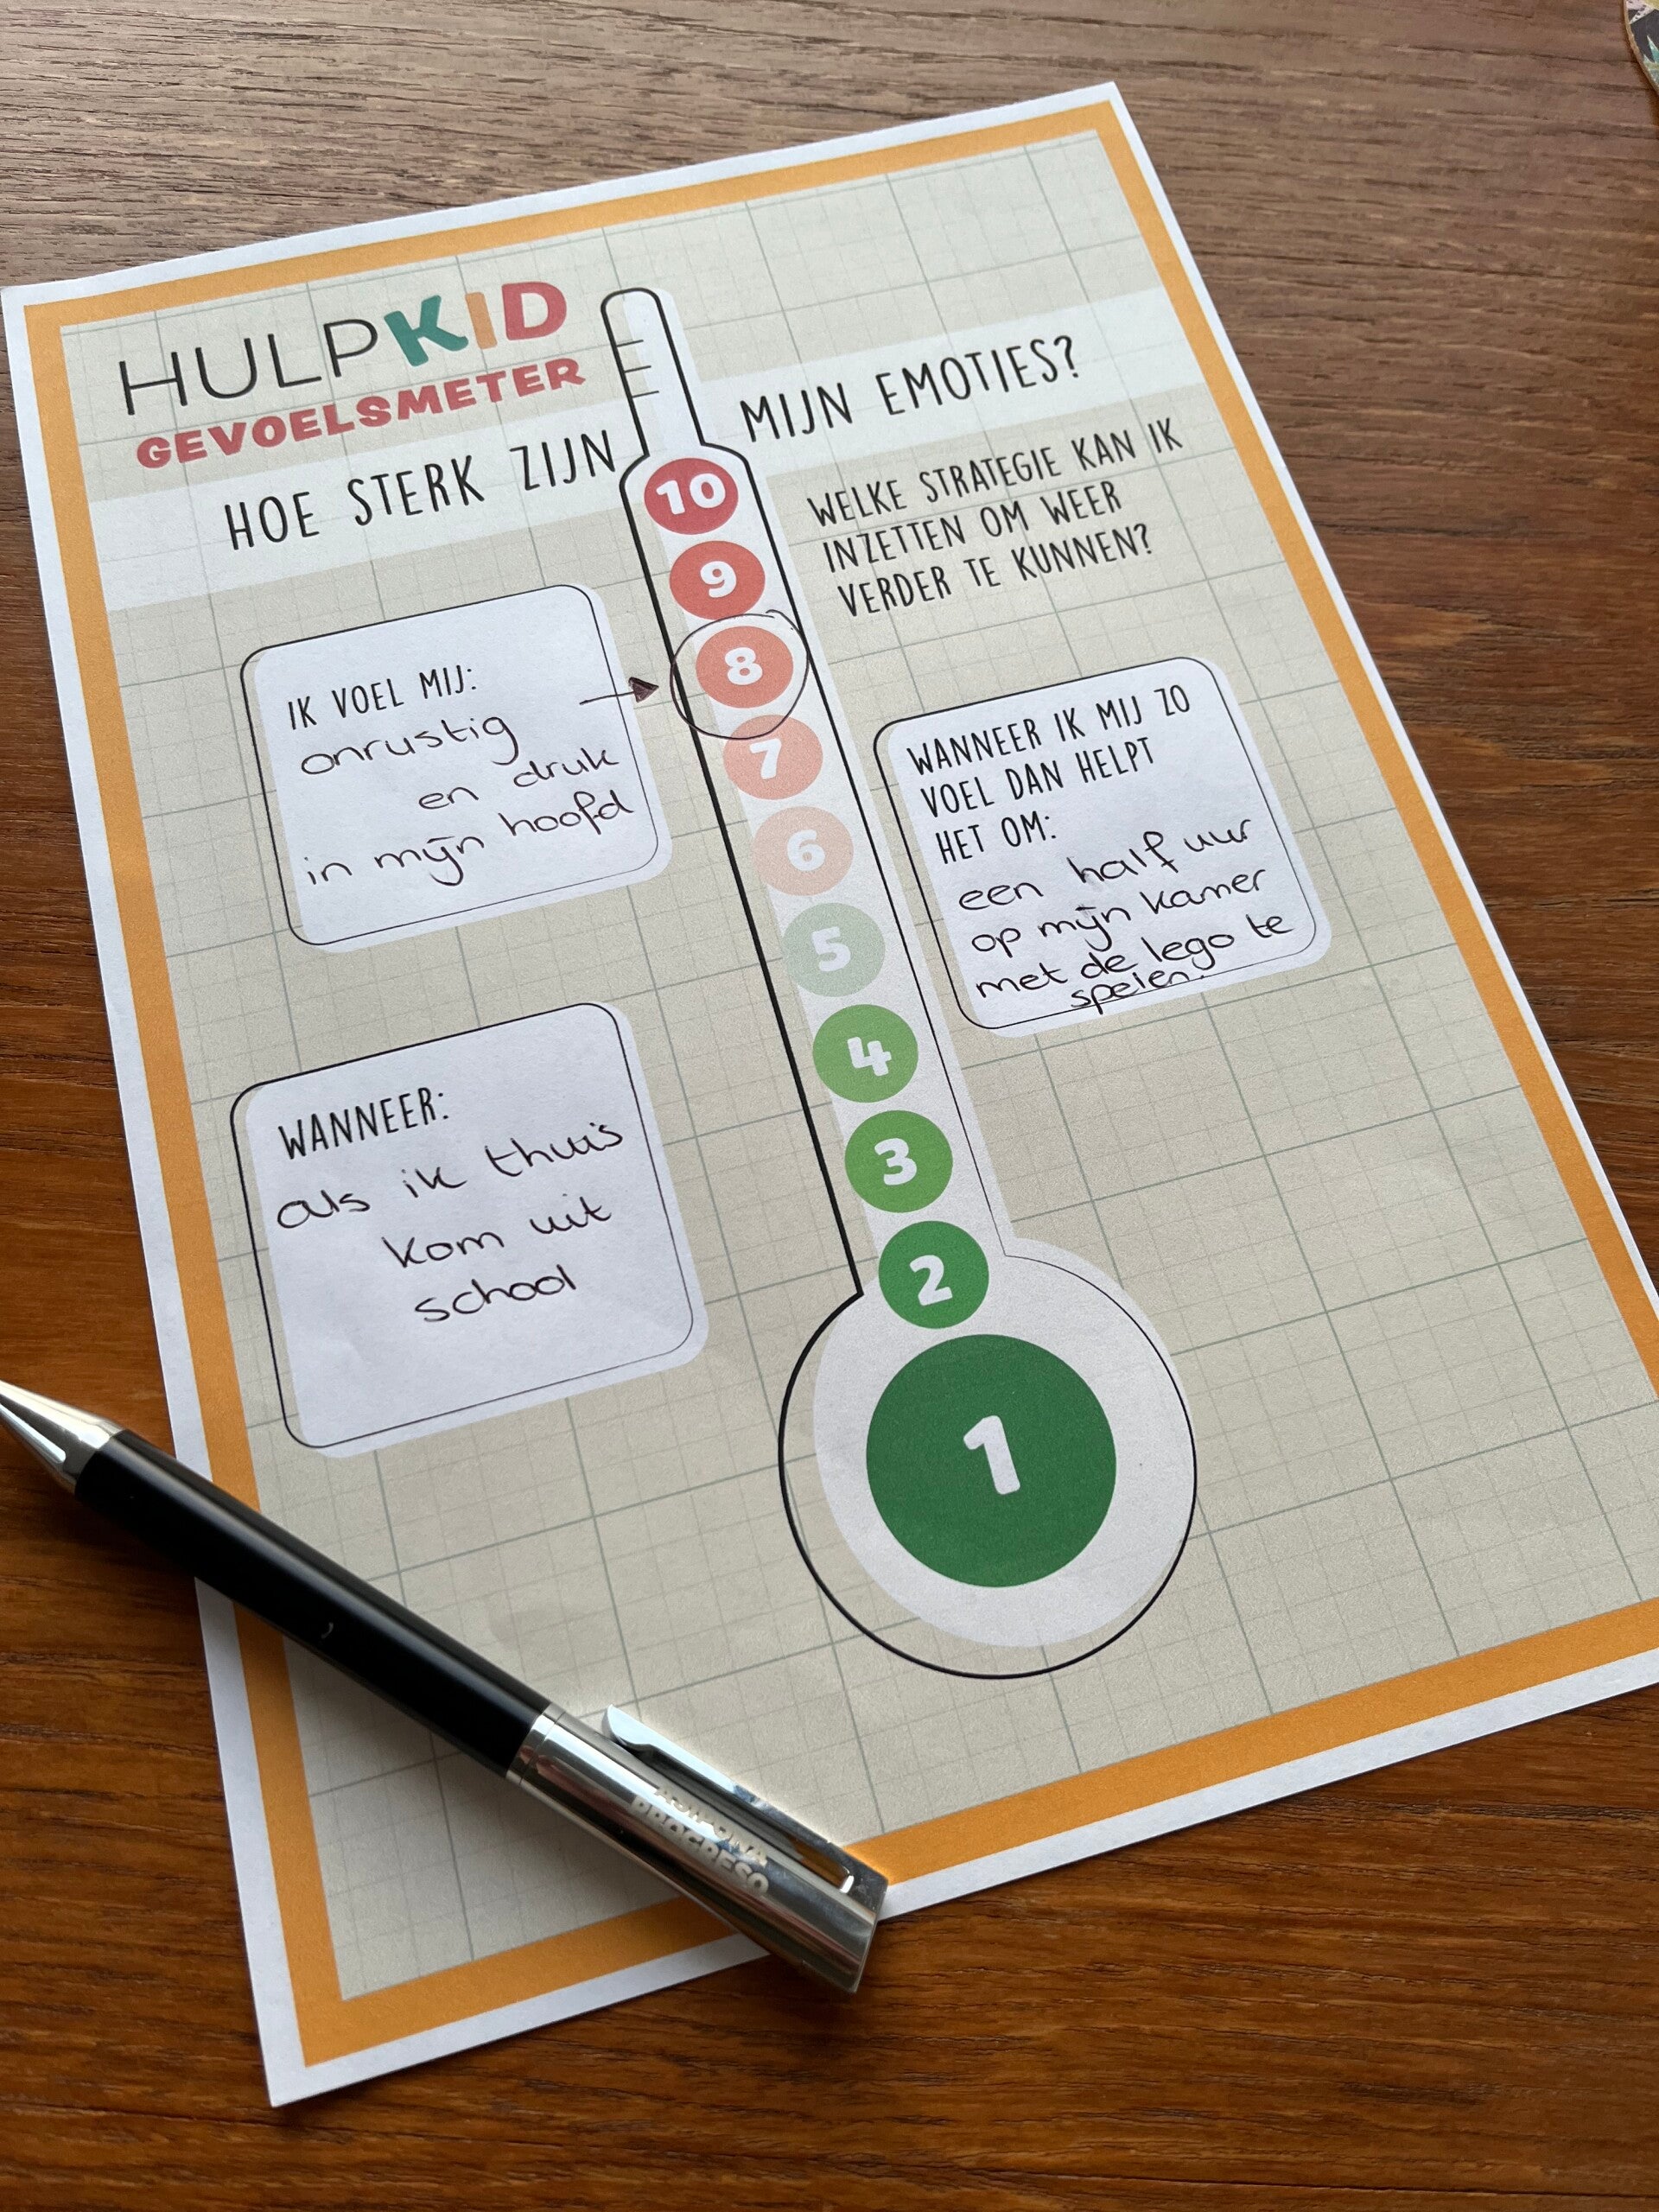 HULPKID
GEVOELSMETER
HOE STERK ZIJN MIJN EMOTIES?
WELKE STRATEGIE KAN IK
INZETTEN OM WEER
VERDER TE KUNNEN?
10
9
8
7
6
5
4
3
2
1
IK VOEL MIJ:
onrustig
en druk
in mijn hoofd
WANNEER IK MIJ ZO
VOEL DAN HELPT
HET OM:
een half uur
op mijn kamer
met de lego te
spelen.
WANNEER:
als ik thuis
kom uit
school
PROGRESO